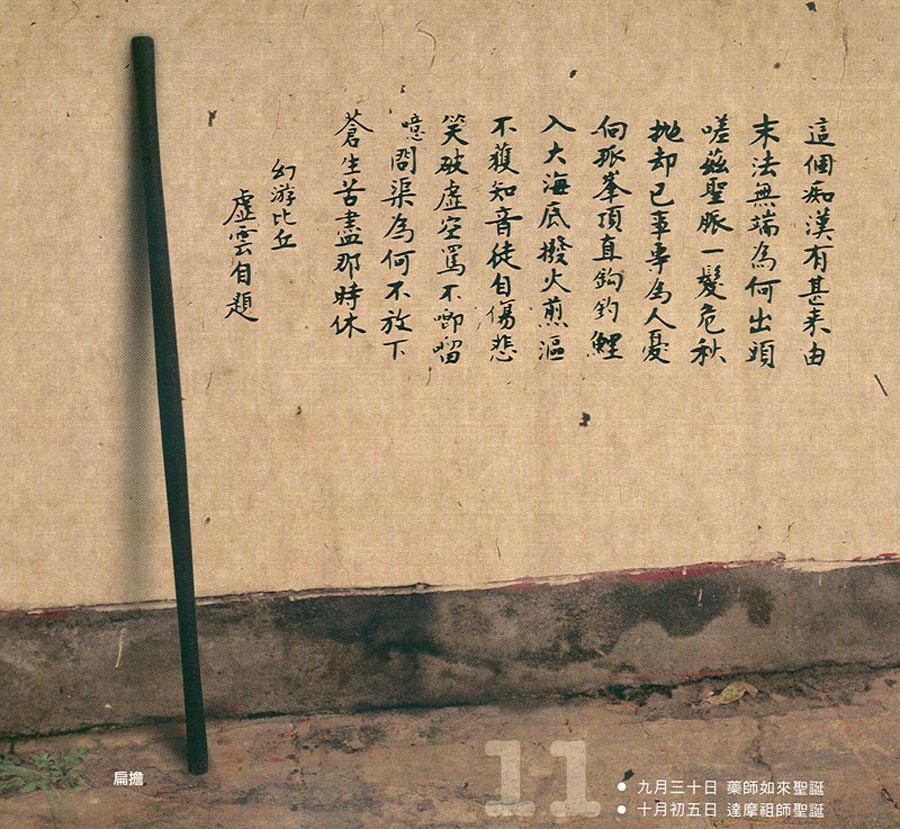 這個痴漢有甚来由
末法無端為何出頭
嗟茲聖脈一髮危秋
抛却已事專為人憂
向孤峯頂直鈎釣鯉
入大海底撥火煎漚
不獲知音徒自傷悲
笑破虛空罵不唧留
噫問渠為何不放下
蒼生苦盡那時休
幻游比丘
虛雲自題
扁擔
11
九月三十日 藥師如來聖誕
十月初五日 達摩祖師聖誕